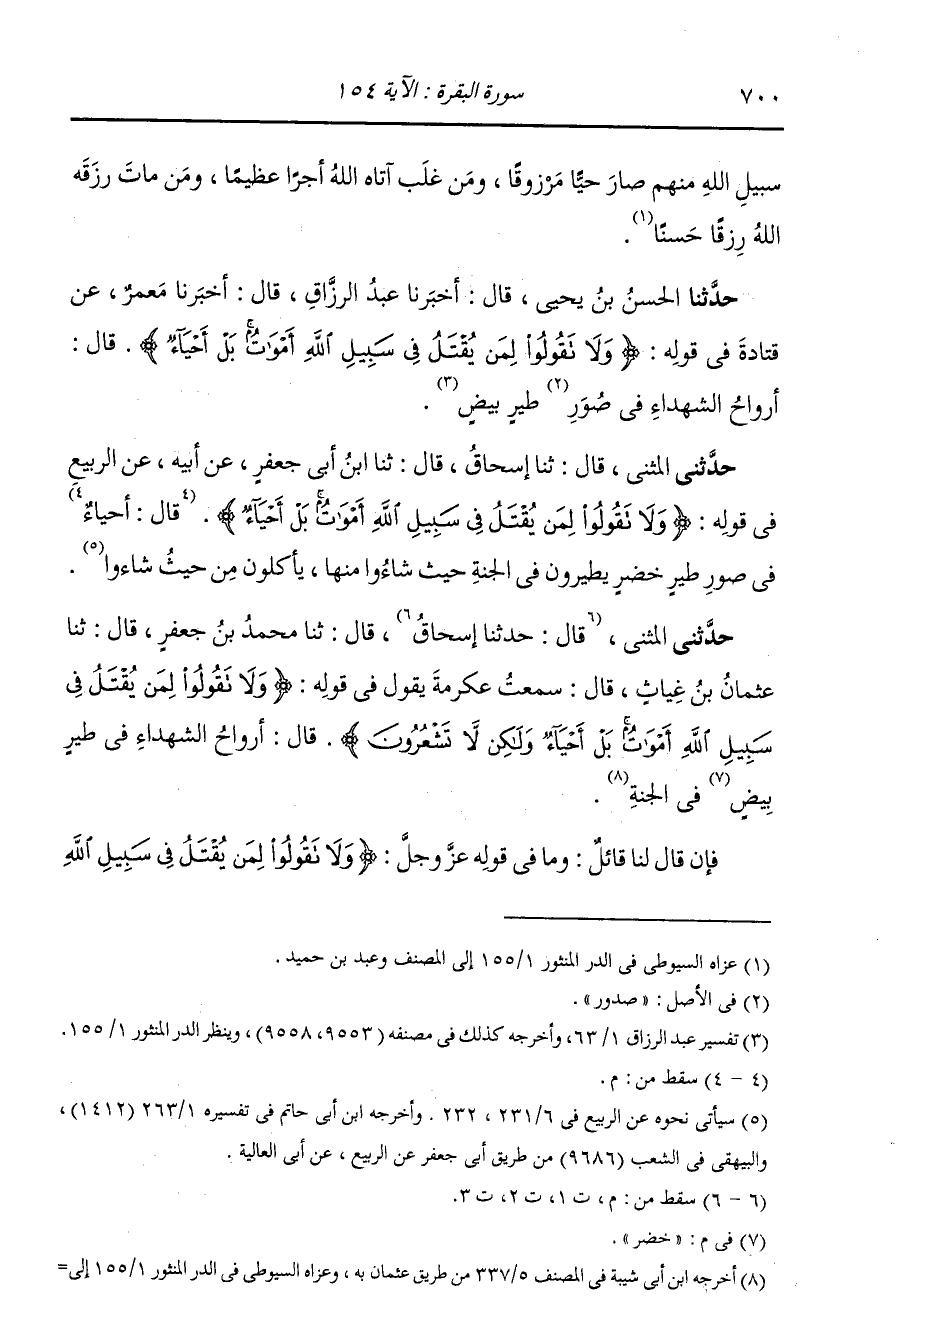 ٧٠٠ سورة البقرة : الآية ١٥٤
سبيلِ اللهِ منهم صارَ حيًّا مَرْزوقًا ، ومَن غلَب آتاه اللهُ أجرًا عظيمًا ، ومَن ماتَ رزَقَه
اللهُ رِزقًا حَسنًا(١) .
حدَّثنا الحسنُ بنُ يحيى ، قال : أخبَرنا عبدُ الرزَّاقِ ، قال : أخبَرنا مَعمرٌ ، عن
قتادةَ فى قولِه : ﴿ وَلَا نَقُولُوا۟ لِمَن يُقْتَلُ فِى سَبِيلِ ٱللَّهِ أَمْوَٰتٌۢ بَلْ أَحْيَآءٌ ﴾ . قال :
أرواحُ الشهداءِ فى صُوَرِ(٢) طيرٍ بيضٍ(٣) .
حدَّثنى المثنى ، قال : ثنا إسحاقُ ، قال : ثنا ابنُ أبى جعفرٍ ، عن أبيه ، عن الربيعِ
فى قولِه : ﴿ وَلَا نَقُولُوا۟ لِمَن يُقْتَلُ فِى سَبِيلِ ٱللَّهِ أَمْوَٰتٌۢ بَلْ أَحْيَآءٌ ﴾ . (٤قال : أحياءٌ٤)
فى صورِ طيرٍ خضرٍ يطيرون فى الجنةِ حيث شاءُوا منها ، يأكلون مِن حيثُ شاءوا(٥) .
حدَّثنى المثنى ، (٦قال : حدثنا إسحاقُ٦) ، قال : ثنا محمدُ بنُ جعفرٍ ، قال : ثنا
عثمانُ بنُ غِياثٍ ، قال : سمعتُ عكرمةَ يقول فى قولِه : ﴿ وَلَا نَقُولُوا۟ لِمَن يُقْتَلُ فِى
سَبِيلِ ٱللَّهِ أَمْوَٰتٌۢ بَلْ أَحْيَآءٌ وَلَـٰكِن لَّا تَشْعُرُونَ ﴾ . قال : أرواحُ الشهداءِ فى طيرٍ
بِيضٍ(٧) فى الجنةِ(٨) .
فإن قال لنا قائلٌ : وما فى قولِه عزَّ وجلَّ : ﴿ وَلَا نَقُولُوا۟ لِمَن يُقْتَلُ فِى سَبِيلِ ٱللَّهِ
(١) عزاه السيوطى فى الدر المنثور ١/ ١٥٥ إلى المصنف وعبد بن حميد .
(٢) فى الأصل : « صدور» .
(٣) تفسير عبد الرزاق ١/ ٦٣، وأخرجه كذلك فى مصنفه (٩٥٥٣، ٩٥٥٨) ، وينظر الدر المنثور ١/ ١٥٥.
(٤ - ٤) سقط من : م .
(٥) سيأتى نحوه عن الربيع فى ٦/ ٢٣١ ، ٢٣٢ . وأخرجه ابن أبى حاتم فى تفسيره ١/ ٢٦٣ (١٤١٢) ،
والبيهقى فى الشعب (٩٦٨٦) من طريق أبى جعفر عن الربيع ، عن أبى العالية .
(٦ - ٦) سقط من : م، ت ١، ت ٢، ت ٣.
(٧) فى م : « خضر» .
(٨) أخرجه ابن أبى شيبة فى المصنف ٥/ ٣٣٧ من طريق عثمان به ، وعزاه السيوطى فى الدر المنثور ١/ ١٥٥ إلى=